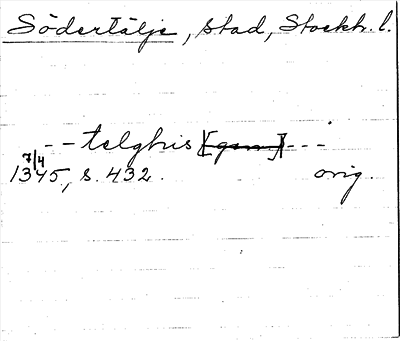 Södertälje, stad, Stockh. l.
- - telghis [gen] - - -
7/4
1345, s. 432. orig.